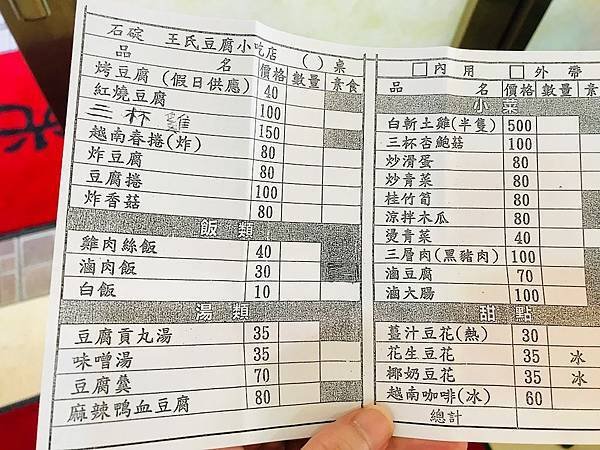 石碇 王氏豆腐小吃店 ( ) 桌
品 名 價格 數量 素食
烤豆腐 (假日供應) 40
紅燒豆腐 100
三杯雞 150
越南春捲(炸) 80
炸豆腐 80
豆腐捲 100
炸香菇 80
飯類
雞肉絲飯 40
滷肉飯 30
白飯 10
湯類
豆腐貢丸湯 35
味噌湯 35
豆腐羹 70
麻辣鴨血豆腐 80
內用 外帶
品 名 價格 數量 素
小菜
白斬土雞(半隻) 500
三杯杏鮑菇 100
炒滑蛋 80
炒青菜 80
桂竹筍 80
涼拌木瓜 80
燙青菜 40
三層肉(黑豬肉) 100
滷豆腐 70
滷大腸 100
甜點
薑汁豆花(熱) 30
花生豆花 35 冰
椰奶豆花 35 冰
越南咖啡(冰) 60
總計